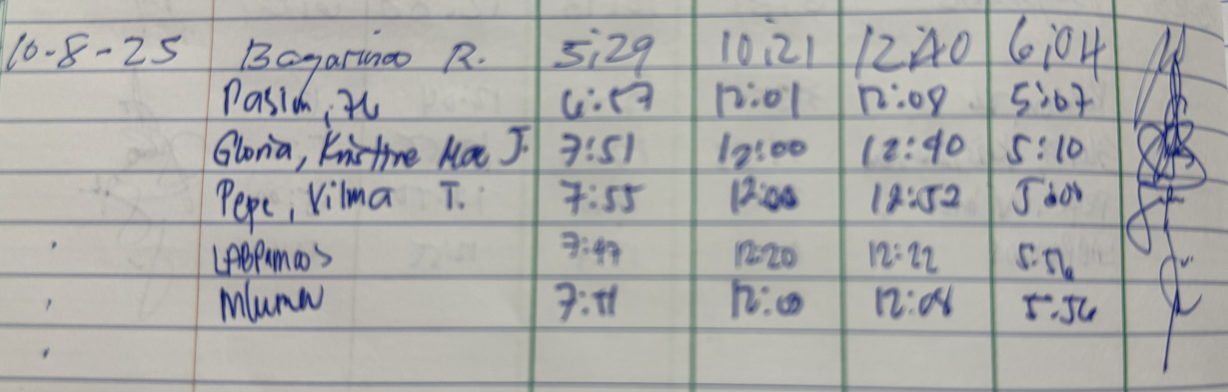 10-8-25 Bagarinao R. 5:29 10:21 12:40 6:04
Pasion, 6:57 12:01 12:08 5:07
Gloria, Kristine Mae J. 7:51 12:00 12:40 5:10
Pepe, Vilma T. 7:55 12:00 12:52
7:47 12:20 12:22 5:56
7:51 12:08 5:56